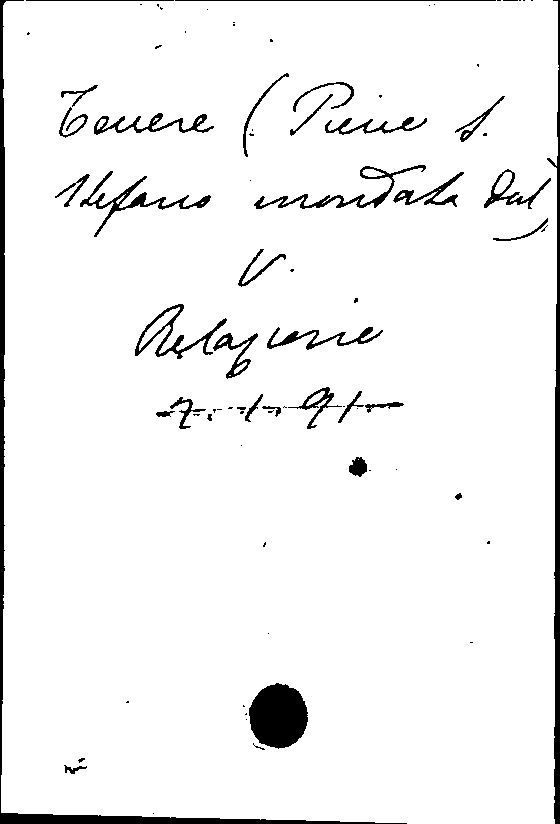 Tevere (Pieve S.
Stefano inondata dal)
V.
Relazione
7. 1. 91.